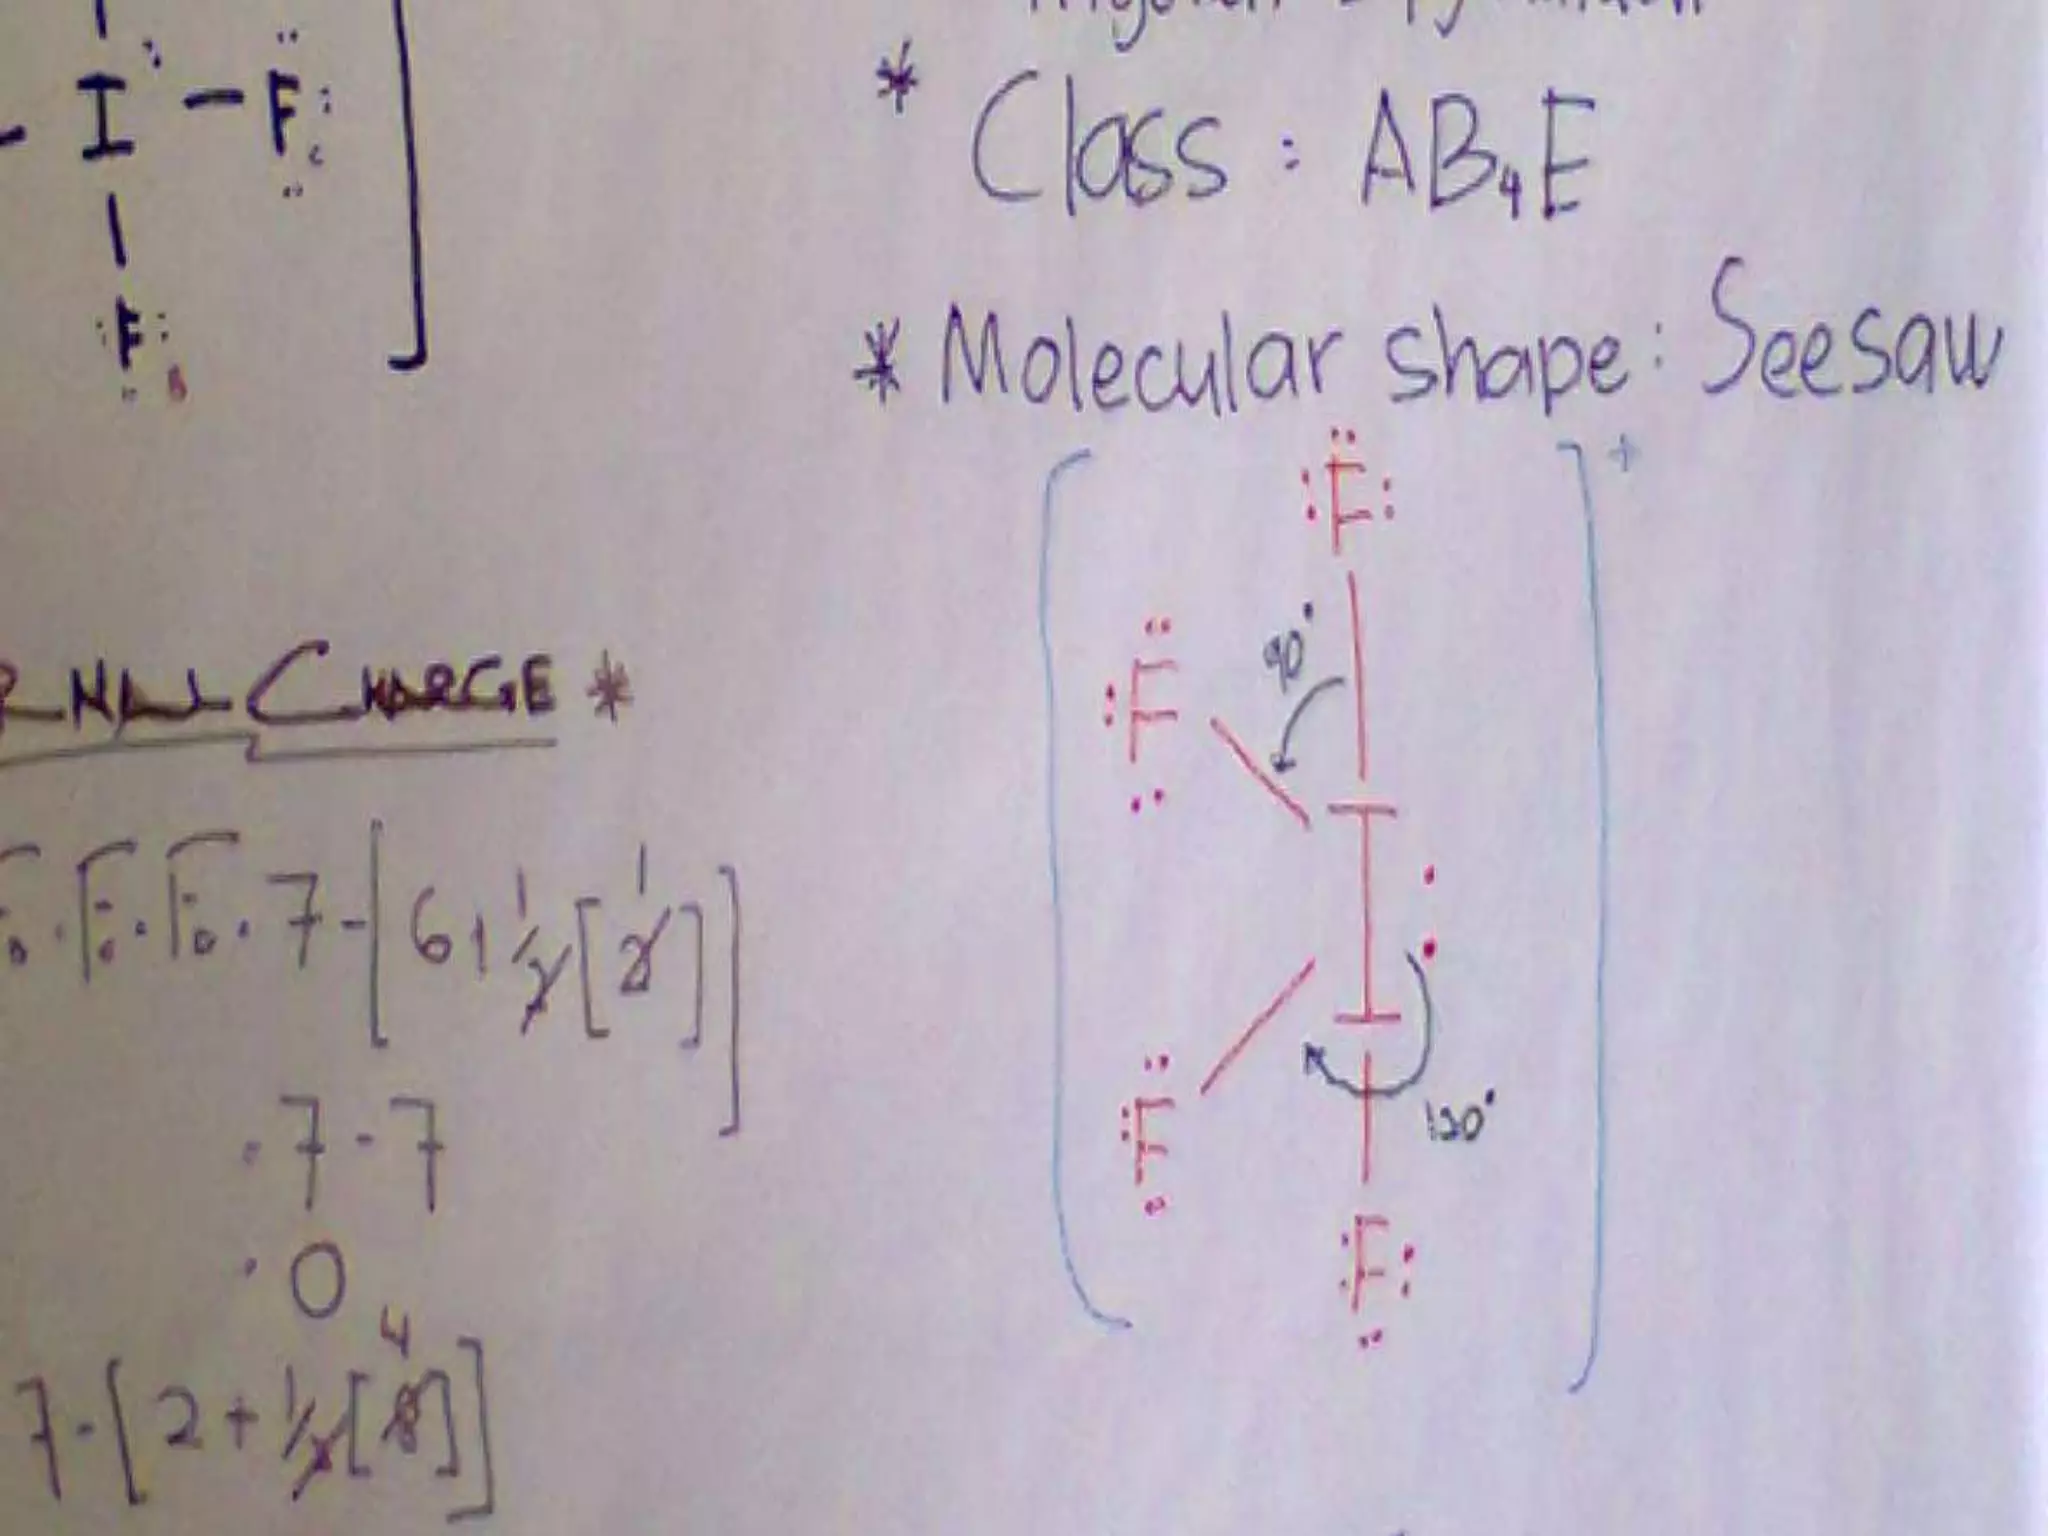 I - F
F
B
* Class : AB4E
* Molecular shape : Seesaw
+
F
F
90°
I
120°
F
F
CHARGE *
7 - [6 + 1/2 [2]]
1
1
· 7 - 7
· 0
4
7 - [2 + 1/2 [8]]